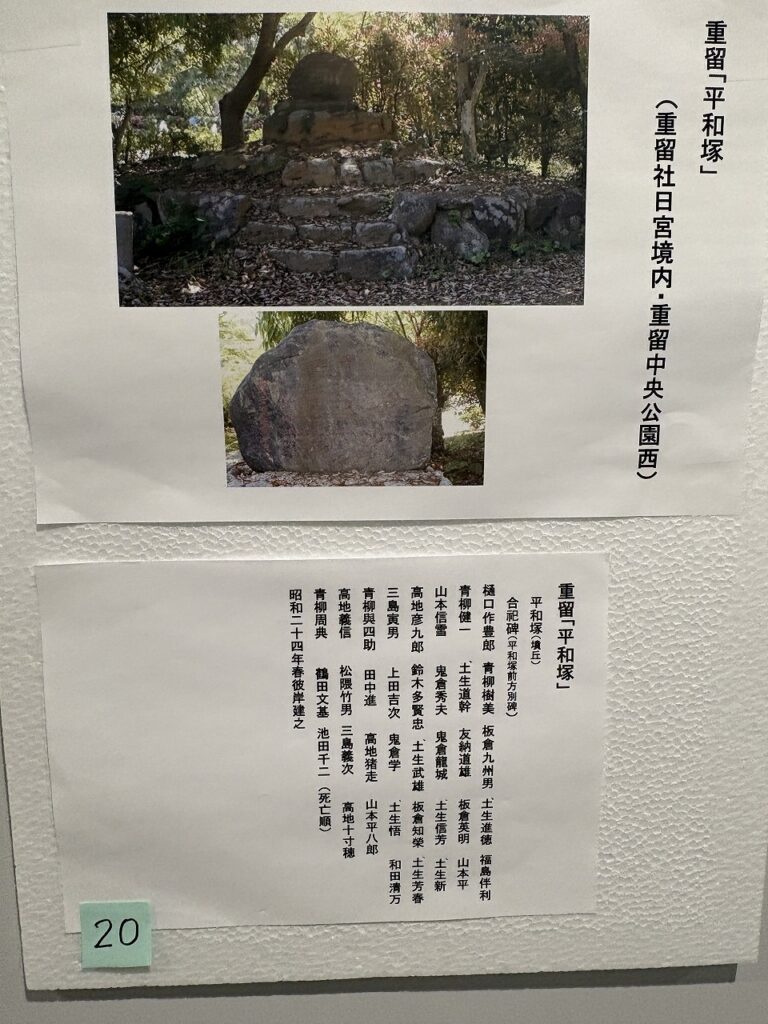 重留「平和塚」
（重留社日宮境内・重留中央公園西）
重留「平和塚」
平和塚（墳丘）
合祀碑（平和塚前方別碑）
樋口作豊郎　青柳樹美　板倉九州男　土生進徳　福島伴利
青柳健一　土生道幹　友納道雄　板倉英明　山本平
山本信雪　鬼倉秀夫　鬼倉龍城　土生信芳　土生新
高地彦九郎　鈴木多賢忠　土生武雄　板倉知榮　土生芳春
三島寅男　上田吉次　鬼倉学　土生悟　和田清万
青柳與四助　田中進　高地猪走　山本平八郎
高地義信　松隈竹男　三島義次　高地十寸穂
青柳周典　鶴田文基　池田千二　（死亡順）
昭和二十四年春彼岸建之
20